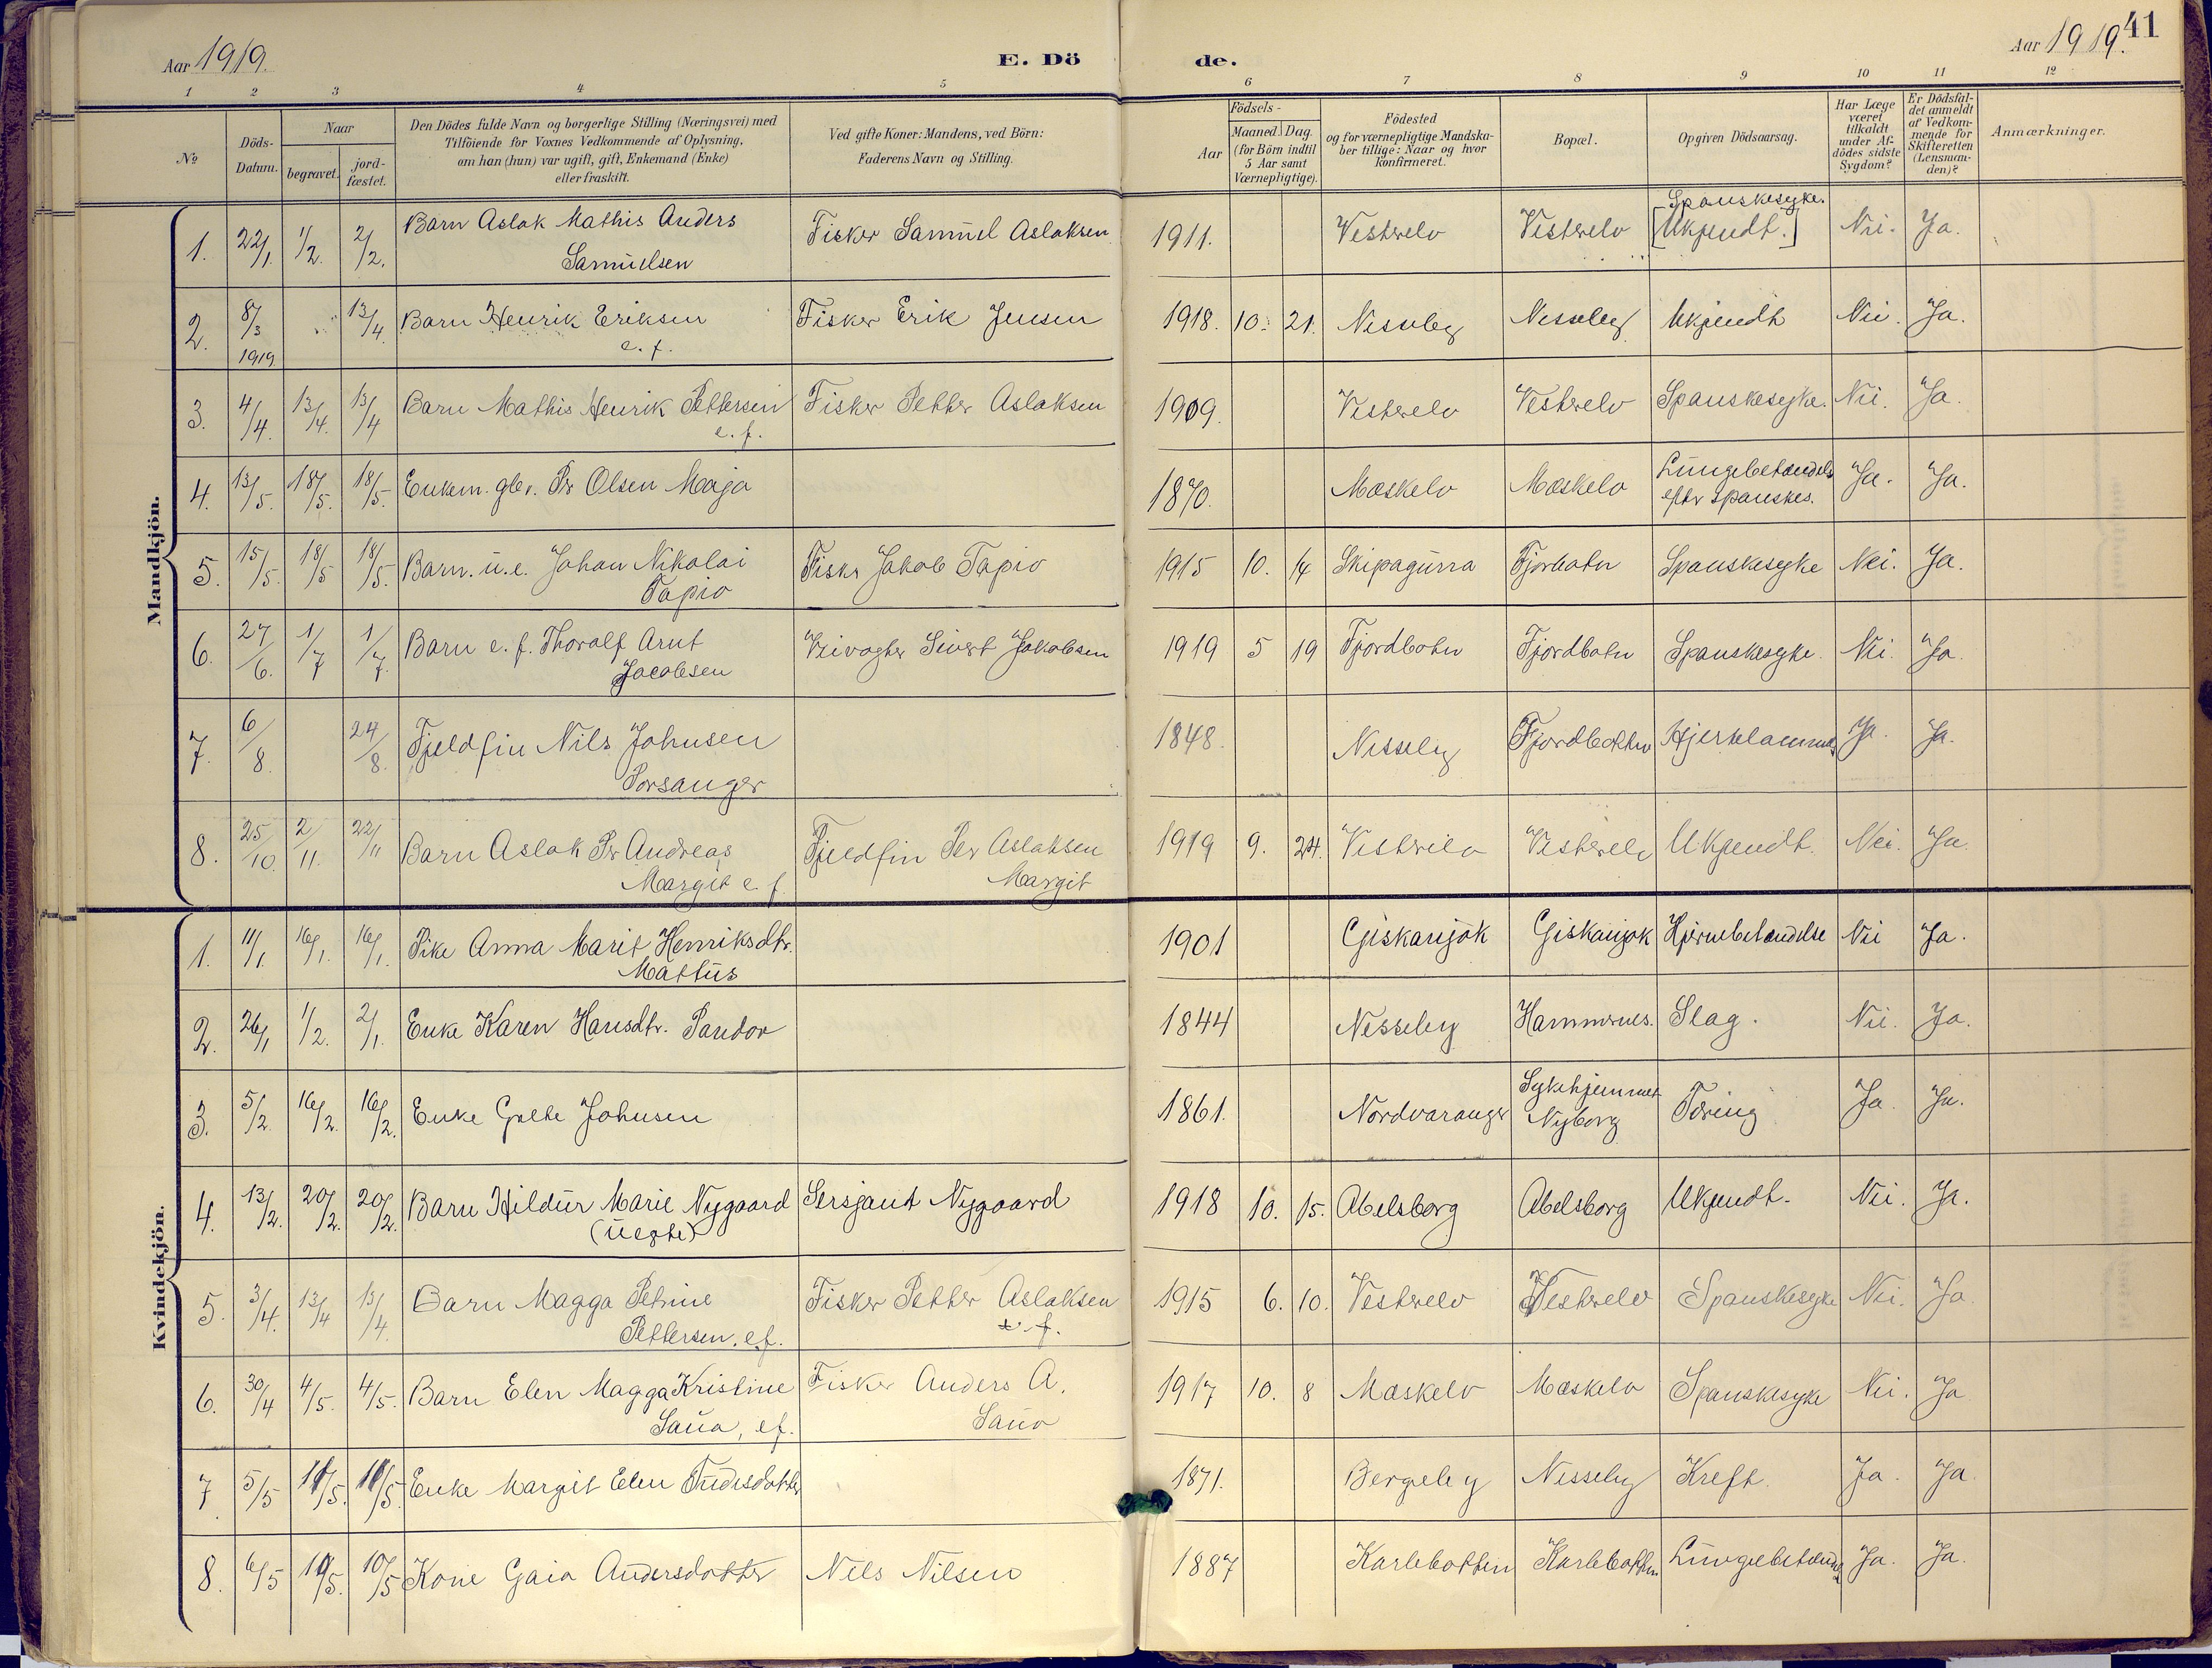 Aar 1919.
E. Dö de.
Aar 1919.
41
1 2 3 4 5 6 7 8 9 10 11 12
No
Döds-Datum.
Naar
begravet.
jord-fæstet.
Den Dödes fulde Navn og borgerlige Stilling (Næringsvei) med
Tilföiende for Voxnes Vedkommende af Oplysning,
om han (hun) var ugift, gift, Enkemand (Enke)
eller fraskilt.
Ved gifte Koner: Mandens, ved Börn:
Faderens Navn og Stilling.
Födsels-
Aar
Maaned. Dag.
(for Börn indtil
5 Aar samt
Værnepligtige).
Födested
og for værnepligtige Mandska-
ber tillige: Naar og hvor
konfirmeret.
Bopæl.
Opgiven Dödsaarsag.
Har Læge
været
tilkaldt
under Af-
dödes sidste
Sygdom?
Er Dödsfal-
det anmeldt
af Vedkom-
mende for
Skifteretten
(Lensman-
den)?
Anmærkninger.
Mandkjön.
1. 22/1. 1/2. 2/2. Barn Aslak Mathis Anders Fisker Samuel Aslaksen 1911. Vesterelv Vesterelv Spanskesyke. [Ukjendt.] Nei. Ja.
Samuelsen
2. 8/3 1919 13/4. Barn Henrik Eriksen Fisker Erik Jensen 1918. 10. 21. Nesseby Nesseby Ukjendt Nei. Ja.
e. f.
3. 4/4. 13/4. 13/4 Barn Mathis Henrik Pettersen Fisker Petter Aslaksen 1909. Vesterelv Vesterelv Spanskesyke. Nei. Ja.
e. f.
4. 13/5. 18/5. 18/5. Enkem. gbr. Per Olsen Maja 1870. Mæskelv Mæskelv Lungebetændels Ja. Ja.
efter spanskes.
5. 15/5. 18/5 18/5. Barn. u. e. Johan Nikolai Fisker Jakob Tapio 1915 10. 14 Skipagurra Fjorbotn Spanskesyke Nei. Ja.
Tapio
6. 27/6. 1/7 1/7. Barn e. f. Thoralf Arnt Veivogter Sivert Jakobsen 1919 5 19 Fjordbotn Fjordbotn Spanskesyke. Nei. Ja.
Jacobsen
7. 6/8. 24/8. Fjeldfin Nils Johnsen 1848. Nesseby Fjordbotten Hjertelammels Ja. Ja.
Porsanger
8. 25/10. 2/11. 22/11 Barn Aslak Per Andreas Fjeldfin Per Aslaksen 1919 9. 24. Vesterelv Vesterelv Ukjendt. Nei. Ja.
Margit e. f. Margit
Kvindekjön.
1. 11/1. 16/1. 16/1. Pike Anna Marit Henriksdtr. 1901 Giskanjok Giskanjok Hjernebetændelse Nei Ja.
Mattus
2. 26/1 1/2. 2/1. Enke Karen Hansdtr. Pandor 1844 Nesseby Hammernes. Slag. Nei. Ja.
3. 5/2. 16/2. 16/2. Enke Grete Johnsen 1861. Nordvaranger Sykehjemmet Tæring Ja. Ja.
Nyborg
4. 13/2. 20/2. 20/2. Barn Hildur Marie Nygaard Sersjant Nygaard 1918 10. 15. Abelsborg Abelsborg Ukjendt. Nei. Ja.
(uegte)
5. 3/4. 13/4 13/4. Barn Magga Petrine Fisker Petter Aslaksen 1915 6. 10. Vesterelv Vesterelv Spanskesyke Nei. Ja
Pettersen. e.f. e. f.
6. 30/4 4/5. 4/5. Barn Elen Magga Kristine Fisker Anders A. 1917 10. 8 Mæskelv Mæskelv Spanskesyke Nei. Ja
Saua, ef. Saua
7. 5/5 11/5. 11/5. Enke Margit Elen 1871. Bergeby Nesseby Kreft. Ja. Ja
8. 6/5 10/5. 10/5 Kone Gaia Andersdatter Nils Nilsen 1887 Karlebotten Karlebotten Lungebetænd Ja. Ja.